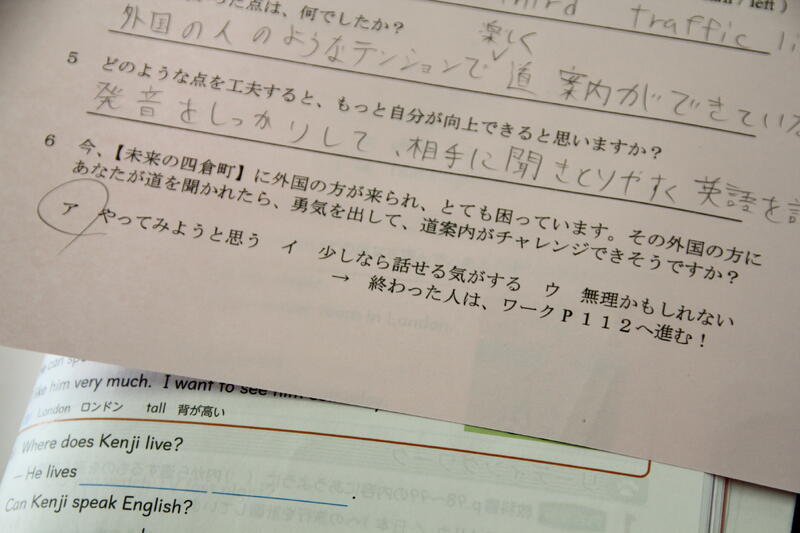 った点は、何でしたか?
third traffic li
left )
楽しく
外国の人のようなテンションで 道 案内ができてい
5 どのような点を工夫すると、もっと自分が向上できると思いますか?
発音をしっかりして、相手に聞きとりやすく 英語を
6 今、【未来の四倉町】に外国の方が来られ、とても困っています。その外国の方に
あなたが道を聞かれたら、勇気を出して、道案内がチャレンジできそうですか?
ア やってみようと思う イ 少しなら話せる気がする ウ 無理かもしれない
→ 終わった人は、ワークP112へ進む!
e can
ke him very much. I want to see him
London ロンドン tall 背が高い
Where does Kenji live?
– He lives .
Can Kenji speak English?